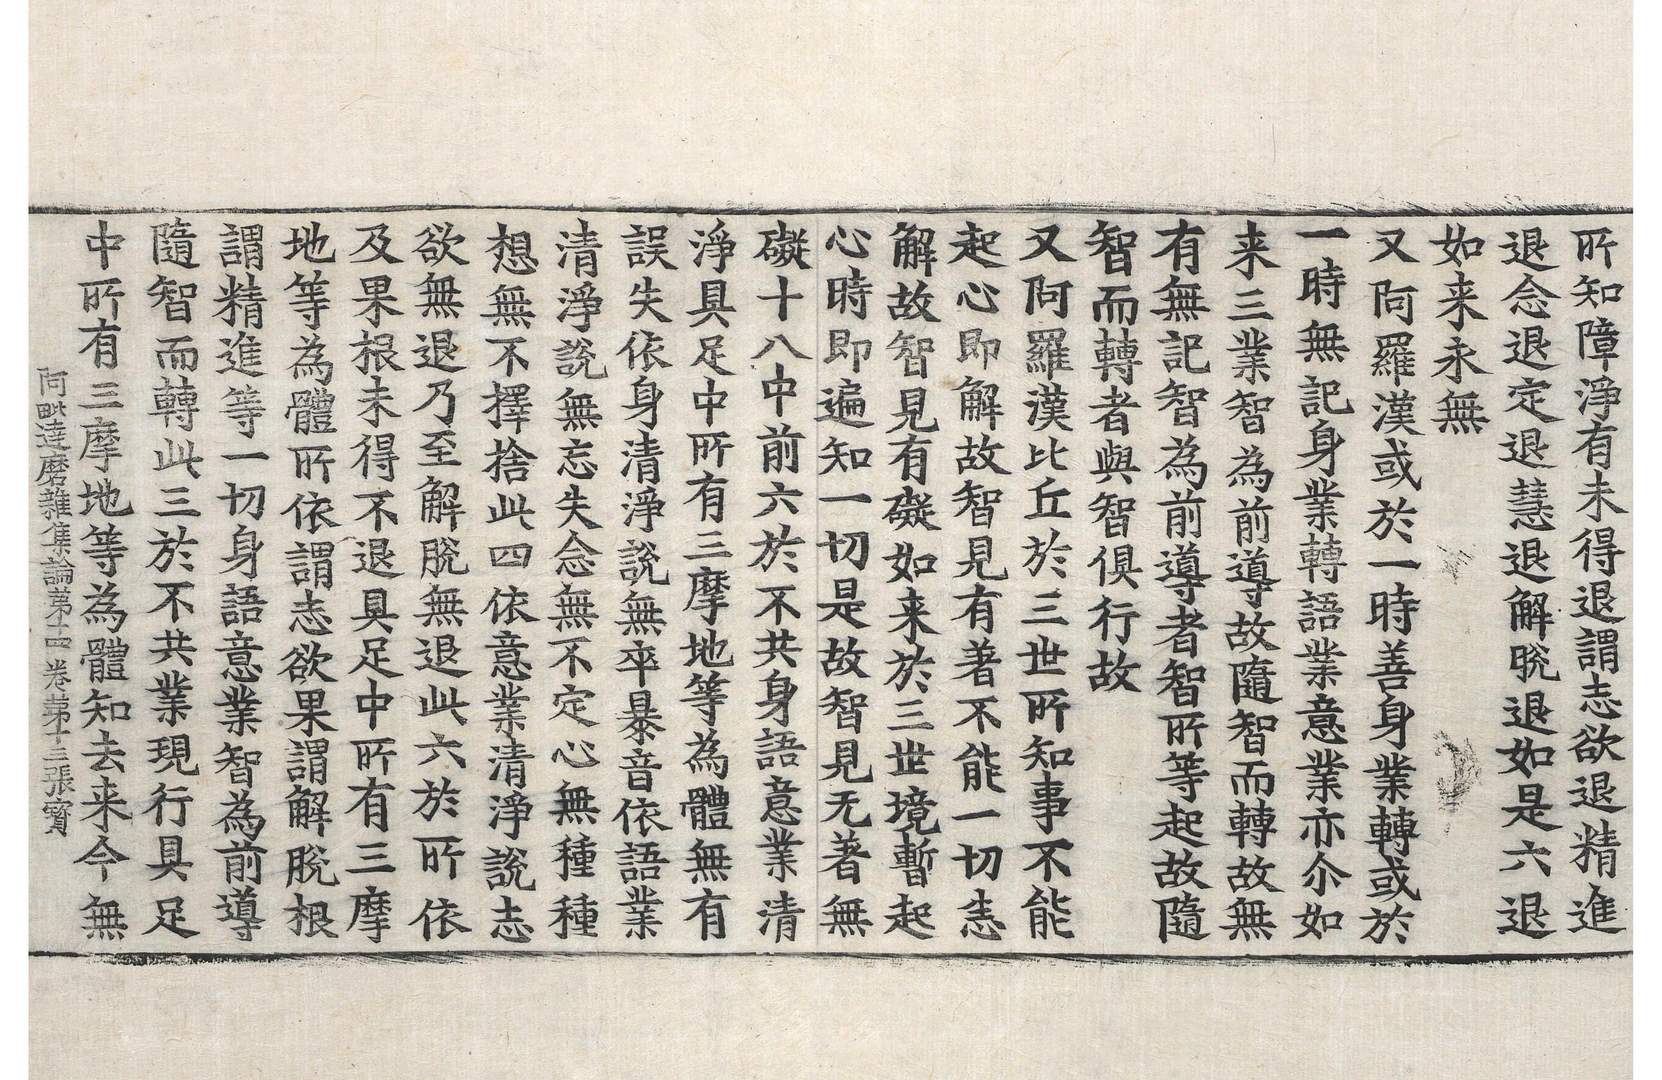 所知障淨有未得退謂志欲退精進
退念退定退慧退解脫退如是六退
如来永無
又阿羅漢或於一時善身業轉或於
一時無記身業轉語業意業亦尒如
来三業智為前導故隨智而轉故無
有無記智為前導者智所等起故隨
智而轉者與智俱行故
又阿羅漢比丘於三世所知事不能
起心即解故智見有著不能一切悉
解故智見有礙如来於三世境暫起
心時即遍知一切是故智見无著無
礙十八中前六於不共身語意業清
淨具足中所有三摩地等為體無有
誤失依身清淨說無卒暴音依語業
清淨說無忘失念無不定心無種種
想無不擇捨此四依意業清淨說志
欲無退乃至解脫無退此六於所依
及果根未得不退具足中所有三摩
地等為體所依謂志欲果謂解脫根
謂精進等一切身語意業智為前導
隨智而轉此三於不共業現行具足
中所有三摩地等為體知去来今無
阿毗達磨雜集論苐十四卷苐十三張寳